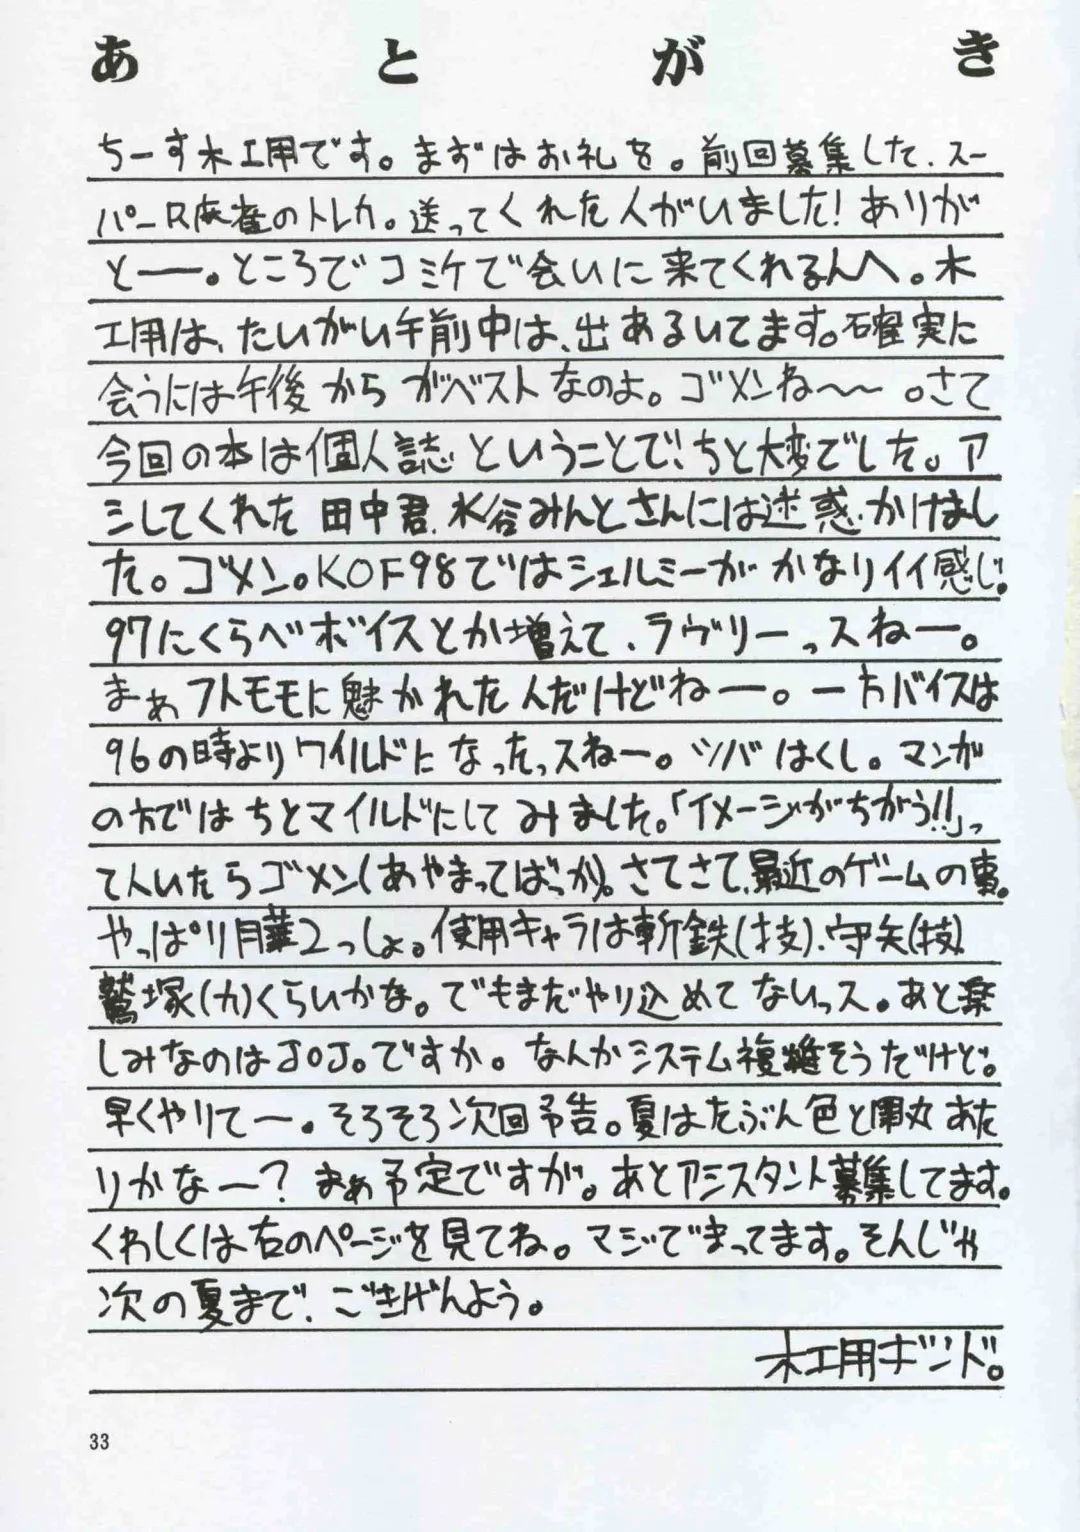 あとがき
ちーす木工用です。まずはお礼を。前回募集した、スー
パーR麻雀のトレカ。送ってくれた人がいました!ありが
とーー。ところでコミケで会いに来てくれるんへ。木
工用は、たいがい午前中は、出あるいてます。確実に
会うには午後からがベストなのよ。ゴメンね〜〜。さて
今回の本は個人誌ということで、ちと大変でした。ア
シしてくれた田中君、水谷みんとさんには迷惑かけまし
た。ゴメン。KOF98ではシェルミーがかなりイイ感じ。
97にくらべボイスとか増えて、ラヴリーっスねー。
まぁフトモモに魅かれた人だけどねー。一方バイスは
96の時よりワイルドになったっスねー。ツバはくし。マンガ
の方ではちとマイルドにしてみました。「イメージがちがう!!」っ
て人いたらゴメン(あやまってばっか)。さてさて、最近のゲームの事。
やっぱり月華2っしょ。使用キャラは斬鉄(技)、守矢(技)
鷲塚(力)くらいかな。でもまだやり込めてないっス。あと楽
しみなのはJOJO。ですか。なんかシステム複雑そうだけど。
早くやりてー。そろそろ次回予告。夏はたぶん色と
りかなー?まぁ予定ですが。あとアシスタント募集してます。
くわしくは右のページを見てね。マジでまってます。そんじゃ
次の夏まで、ごきげんよう。
木工用ボンド。
33